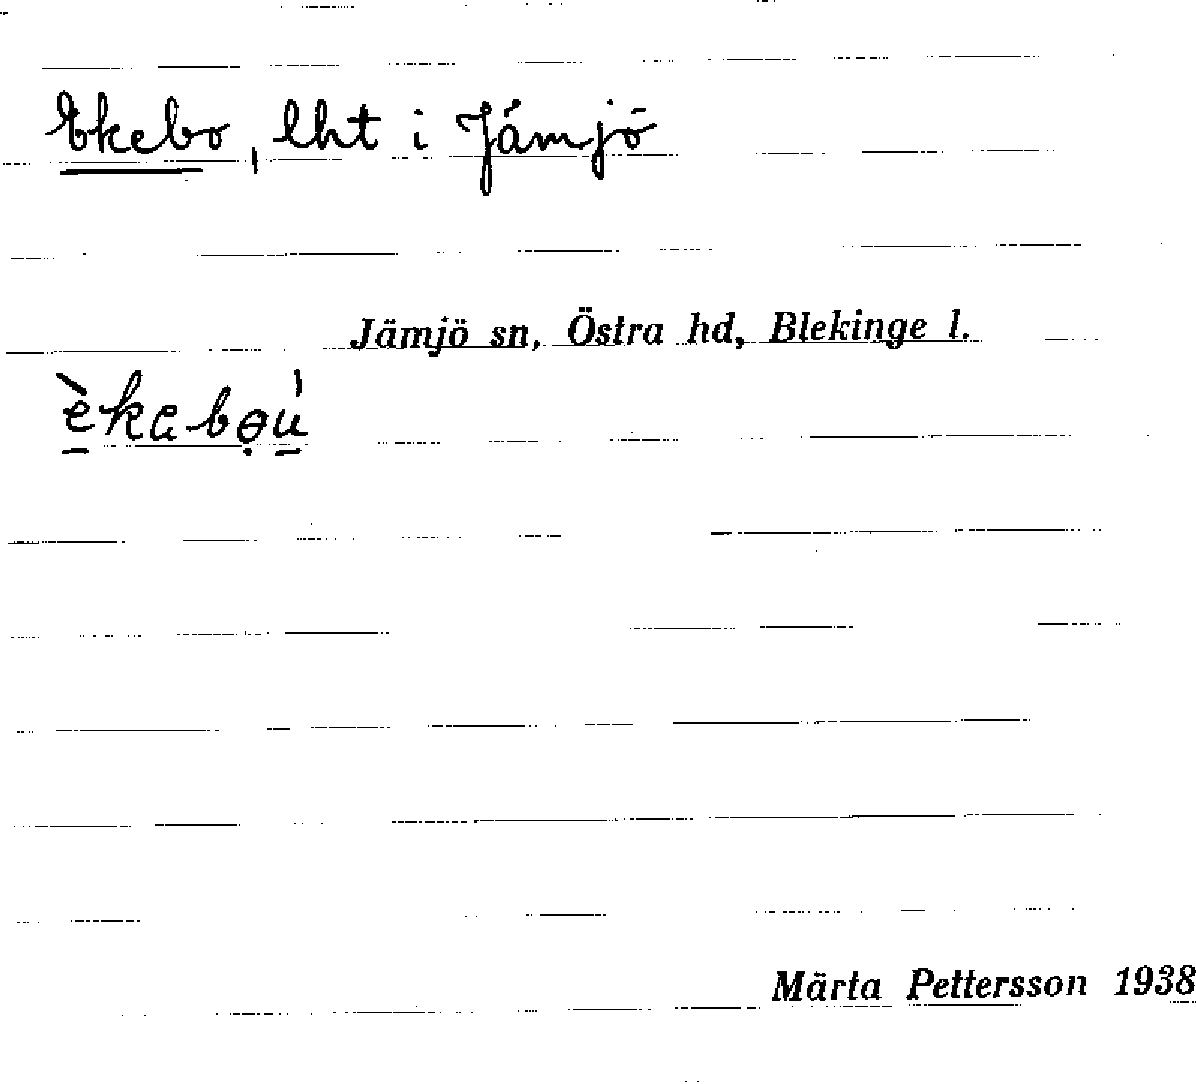 Ekebo, lht i Jämjö
Jämjö sn, Östra hd, Blekinge l.
Märta Pettersson 1938